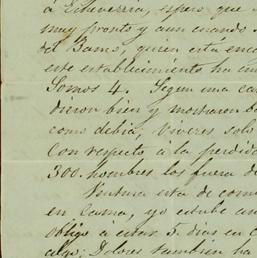 á Echeverria, espero que
muy pronto y aun cuando
del Banco, quien esta
este establecimiento ha
Somos 4. Segun una ca
dieron bien y mostraron
como debia, Viveres solo
Con respecto á la perdida
300 hombres los fuera de
Ventura esta de
en Casma, yo estube
obligo á estar 3. dias en
algo; Dolores tambien ha